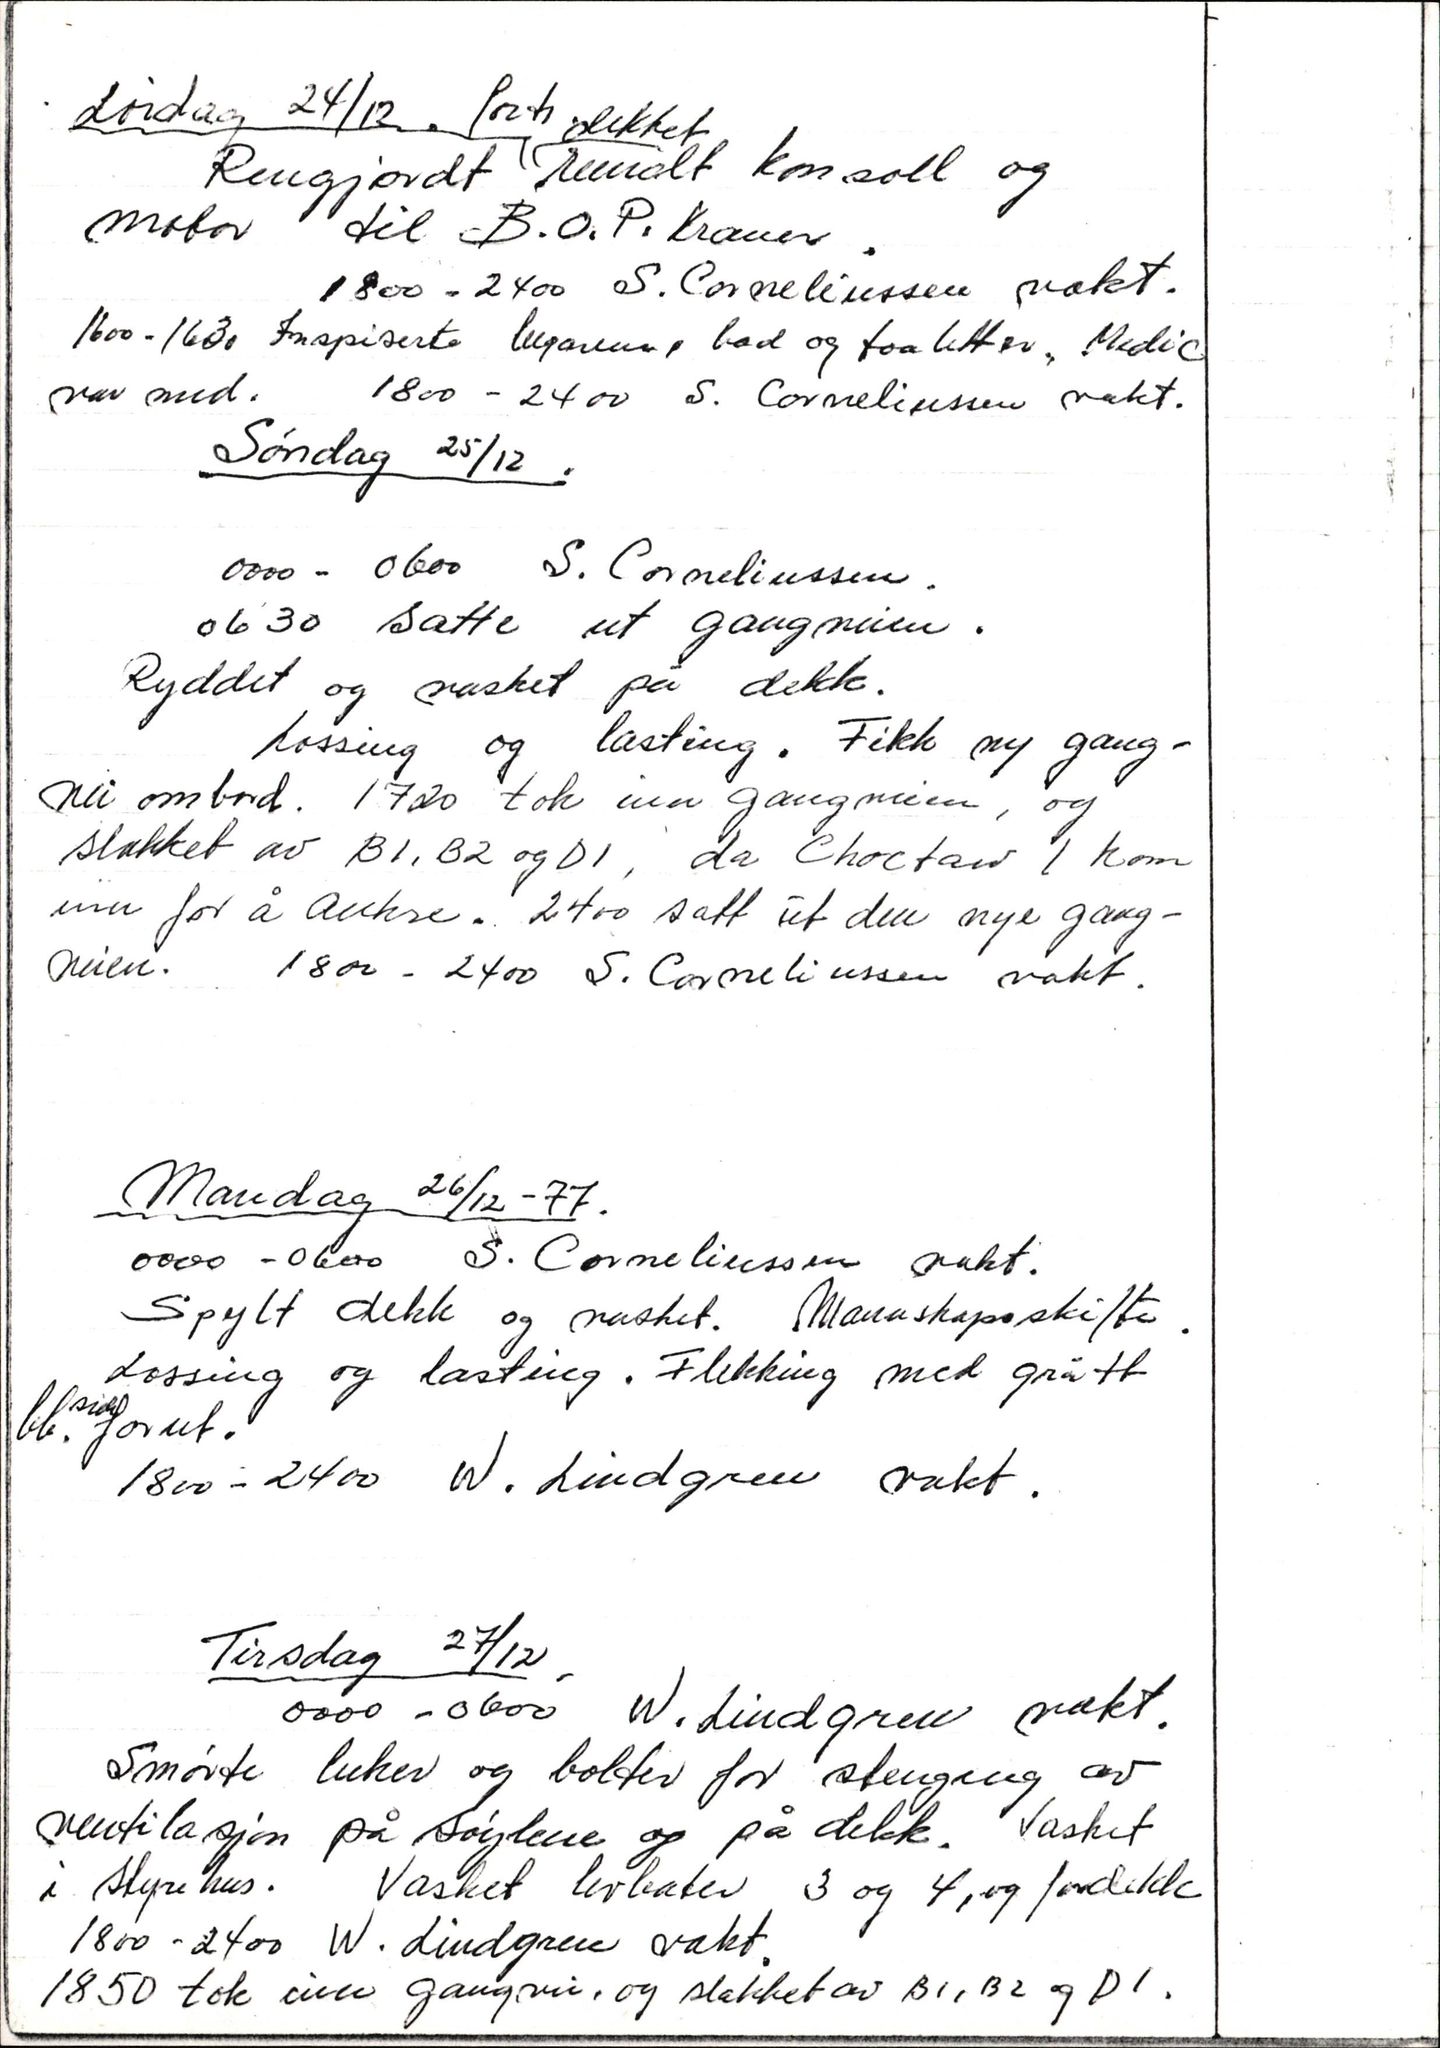 Lørdag 24/12. forts dekket
Rengjordt konsoll og
motor til B.O.P. Kranen.
1800 - 2400 S. Corneliussen vakt.
1600 - 1630 Inspiserte lugarene, bad og toaletter, Medic
var med. 1800 - 2400 S. Corneliussen vakt.
Søndag 25/12.
0000 - 0600 S. Corneliussen.
0630 satte ut gangveien.
Ryddet og vasket på dekk.
Lossing og lasting. Fikk ny gang-
vei ombord. 1720 tok inn gangveien, og
slakket av B1, B2 og D1, da Choctaw I kom
inn for å ankre. 2400 satt ut den nye gang-
veien. 1800 - 2400 S. Corneliussen vakt.
Mandag 26/12 - 77.
0000 - 0600 S. Corneliussen vakt.
Spylt dekk og vasket. Mannskapsskifte.
Lossing og lasting. Flekking med grått
bb. side forut.
1800 - 2400 W. Lindgren vakt.
Tirsdag 27/12.
0000 - 0600 W. Lindgren vakt.
Smørte luker og bolter for stenging av
ventilasjon på søylene og på dekk. Vasket
i styrehus. Vasket livbåter 3 og 4, og fordekk
1800 - 2400 W. Lindgren vakt.
1850 tok inn gangvei, og slakket av B1, B2 og D1.